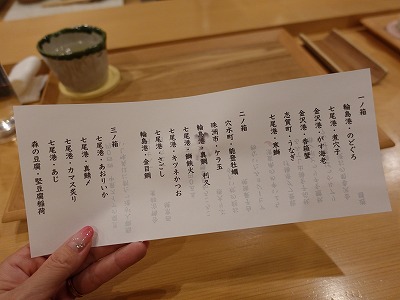 一ノ箱
輪島港・のどぐろ
七尾港・煮穴子
金沢港・がす海老
金沢港・香箱蟹
志賀町・うなぎ
七尾港・寒鰤
二ノ箱
穴水町・能登牡蠣
珠洲市・ケラ玉
輪島港・真鯛 利久
七尾港・鰤鉄火
七尾港・キツネかつお
七尾港・さごし
輪島港・金目鯛
三ノ箱
七尾港・あおりいか
七尾港・真鯖〆
七尾港・カマス炙り
七尾港・あじ
森の豆腐・堅豆腐稲荷